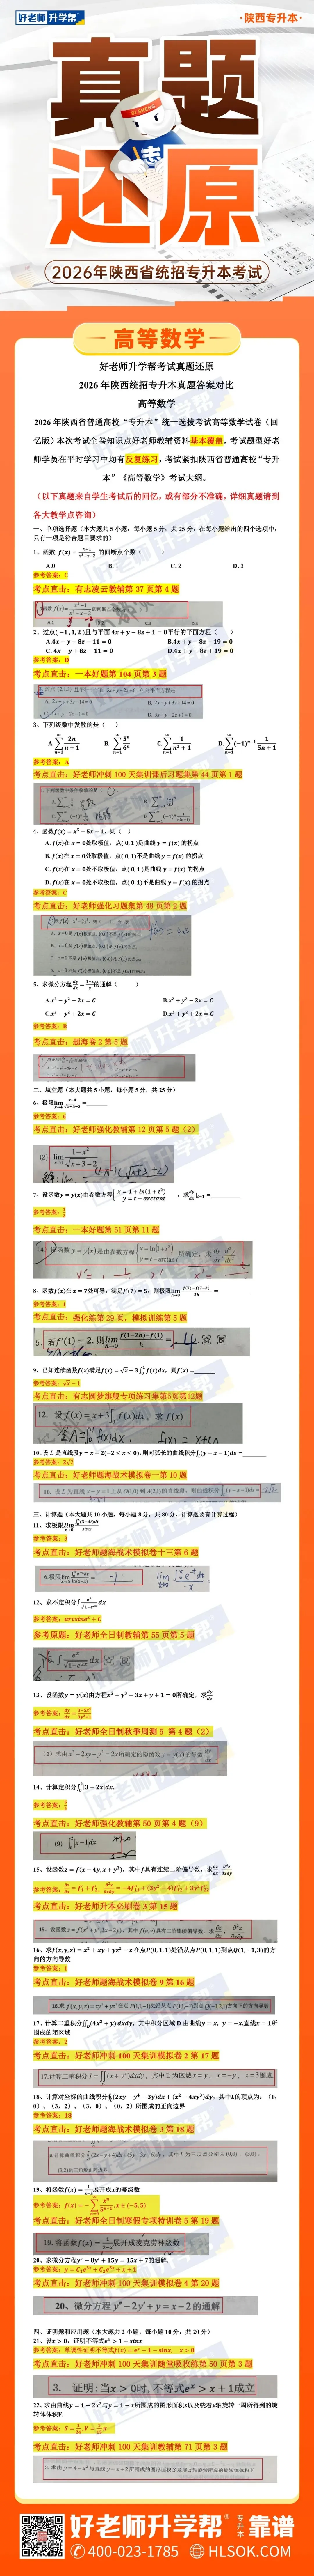 好老师升学帮
·陕西专升本·
真题
还原
2026年陕西省统招专升本考试
高等数学
好老师升学帮考试真题还原
2026 年陕西统招专升本真题答案对比
高等数学
2026 年陕西省普通高校“专升本”统一选拔考试高等数学试卷（回
忆版）本次考试全卷知识点好老师教辅资料基本覆盖，考试题型好老
师学员在平时学习中均有反复练习，考试紧扣陕西省普通高校“专升
本”《高等数学》考试大纲。
（以下真题来自学生考试后的回忆，或有部分不准确，详细真题请到
各大教学点咨询）
一、单项选择题（本大题共 5 小题，每小题 5 分，共 25 分，在每小题给出的四个选项中，
只有一项是符合题目要求的）
1、函数 f(x) = (x+1)/(x²+x−2) 的间断点个数（ ）
A.0 B. 1 C. 2 D. 3
参考答案：C
考点直击：有志凌云教辅第 37 页第 4 题
2、过点(−1,1,2)且与平面 4x + y − 8z + 1 = 0平行的平面方程（ ）
A.4x − y + 8z − 11 = 0 B.4x + y − 8z − 19 = 0
C. 4x − y + 8z + 11 = 0 D.4x + y − 8z + 19 = 0
参考答案：D
考点直击：一本好题第 104 页第 3 题
3、下列级数中发散的是（ ）
A. ∑ 2n/(n+1) B. ∑ 5ⁿ/6ⁿ C. ∑ 1/(n²+1) D. ∑ (−1)ⁿ⁻¹ 1/(5n+1)
参考答案：A
考点直击：好老师冲刺 100 天集训课后习题集第 44 页第 1 题
4、函数f(x) = x⁵ − 5x + 1，则（ ）
A. f(x)在 x = 0处取极值，点( 0, 1 )是曲线 y = f(x) 的拐点
B. f(x)在 x = 0处取极值，点( 0, 1)不是曲线 y = f(x) 的拐点
C. f(x)在 x = 0处不取极值，点( 0, 1 )是曲线 y = f(x) 的拐点
D. f(x)在 x = 0处不取极值，点( 0, 1)不是曲线 y = f(x) 的拐点
参考答案：C
考点直击：好老师强化习题集第 48 页第 2 题
5、求微分方程 dy/dx = (1−x)/y 的通解（ ）
A.x² − y² − 2x = C B.x² + y² − 2x = C
C.x² − y² + 2x = C D.x² + y² + 2x = C
参考答案：B
考点直击：题海卷 2 第 5 题
二、填空题（本大题共 5 小题，每小题 5 分，共 25 分）
6、极限lim x→4 (x−4)/(√(x+5)−3) =
参考答案：6
考点直击：好老师强化教辅第 12 页第 5 题（2）
(2) lim x→1 (1−x²)/(√(x+3)−2)
7、设函数y = y(x)由参数方程{ x = 1 + ln(1 + t²) y = t − arctant ，求dy/dx|t=1 =
参考答案：1/2
考点直击：一本好题第 51 页第 11 题
8、函数f(x)在 x = 7处可导，满足f′(7) = 5，则极限lim h→0 (f(7)−f(7−h))/5h =
参考答案：1
考点直击： 强化练第 29 页，模拟训练第 5 题
5. 若f′(1)=2, 则lim h→0 (f(1−2h)−f(1))/h =
9、已知连续函数f(x)满足f(x) = √x + 3∫₀¹ f(x)dx，则f(x) =
参考答案：√x − 1
考点直击：有志圆梦旗舰专项练习集第5页第12题
12. 设 f(x)=x+3∫₀¹ f(t)dx，求 f(x)
10、设 L 是直线段y = x + 2(−2 ≤ x ≤ 0)，则对弧长的曲线积分∫(y − x − 1)ds =
参考答案：2√2
考点直击：好老师题海战术模拟卷一第 10 题
三、计算题（本大题共 10 小题，每小题 8 分，共 80 分，计算题要有计算过程）
11、求极限lim x→0
参考答案：3
考点直击：好老师题海战术模拟卷十三第 6 题
12、求不定积分∫ eˣ/√(1−e²ˣ) dx
参考答案：arcsineˣ + C
参考原题：好老师全日制教辅第 55 页第 5 题
13、设函数y = y(x)由方程x³ + y³ − 3x + y + 1 = 0所确定，求dy/dx
参考答案：dy/dx = (3−3x²)/(3y²+1)
考点直击：好老师全日制秋季周测 5 第 4 题（2）
14、计算定积分∫|3 − 2x|dx.
参考答案：
考点直击：好老师强化教辅第 50 页第 4 题（9）
15、设函数z = f(x − 4y, x + y³)，其中f具有连续二阶偏导数，求
参考答案：
考点直击：好老师升本必刷卷 3 第 15 题
16、求f(x, y, z) = x² + xy + yz² − z 在点P(0, 1, 1)处沿从点P(0, 1, 1)到点Q(1, −1, 3)的方
向的方向导数
参考答案：1
考点直击：好老师题海战术模拟卷 9 第 16 题
17、计算二重积分∬(4x² + y) dxdy，其中积分区域 D 由曲线y = x, y = −x,直线x = 1所
围成的闭区域
参考答案：2
考点直击：好老师冲刺 100 天集训模拟卷 2 第 17 题
18、计算对坐标的曲线积分∮(2xy − y⁴ − 3y)dx + (x² − 4xy³)dy，其中L的顶点为：（0，
0）、（3，2）、（3，0）、（0，2）所围成的正向边界
参考答案：18
考点直击：好老师题海战术模拟卷 3 第 18 题
19、将函数f(x) = 1/(x−5)展开成x的幂级数
参考答案：f(x) = −∑ xⁿ/5ⁿ⁺¹, x ∈ (−5, 5)
考点直击：好老师全日制寒假专项特训卷 5 第 19 题
19. 将函数f(x)=1/(2−x)展开成麦克劳林级数
20、求微分方程y″ − 8y′ + 15y = 15x + 7的通解.
参考答案：y = C₁e³ˣ + C₂e⁵ˣ + x + 1
考点直击：好老师冲刺 100 天集训模拟卷 4 第 20 题
20、微分方程 y″−2y′+y=x−2的通解
四、证明题和应用题（本大题共 2 小题，每小题 10 分，共 20 分）
21、设x > 0，证明不等式eˣ > 1 + sinx
参考答案：单调性证明不等式f(x) = eˣ − 1 − sinx, x > 0
考点直击：好老师冲刺 100 天集训随堂吸收练第 50 页第 3 题
3. 证明:当x > 0时,不等式eˣ > x + 1成立
22、求由曲线y = 1 − 2x²与y = 1 − x所围成的图形面积S以及绕着x轴旋转一周所得到的旋
转体体积V.
参考答案：
考点直击：好老师冲刺 100 天集训教辅第 71 页第 3 题
好老师升学帮
专升本
靠谱
400-023-1785
HLSOK.COM